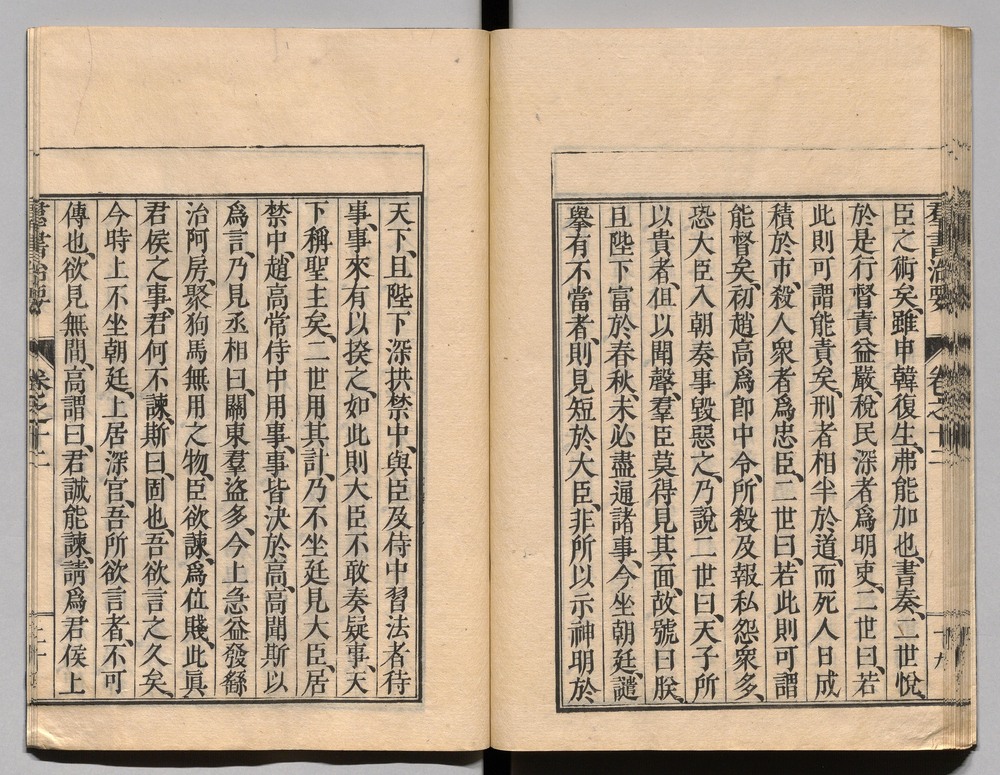 群書治要 卷之十二 十九
臣之術矣、雖申韓復生、弗能加也、書奏、二世悅、
於是行督責益嚴、稅民深者爲明吏、二世曰、若
此則可謂能責矣、刑者相半於道、而死人日成
積於市、殺人衆者爲忠臣、二世曰、若此則可謂
能督矣、初趙高爲郎中令、所殺及報私怨衆多、
恐大臣入朝奏事毀惡之、乃說二世曰、天子所
以貴者、但以聞聲、羣臣莫得見其面、故號曰朕、
且陛下富於春秋、未必盡通諸事、今坐朝廷、譴
擧有不當者、則見短於大臣、非所以示神明於
天下、且陛下深拱禁中、與臣及侍中習法者待
事、事來有以揆之、如此則大臣不敢奏疑事、天
下稱聖主矣、二世用其計、乃不坐廷見大臣、居
禁中、趙高常侍中用事、事皆決於高、高聞斯以
爲言、乃見丞相曰、關東羣盜多、今上急益發繇
治阿房、聚狗馬無用之物、臣欲諫、爲位賤、此眞
君侯之事、君何不諫、斯曰、固也、吾欲言之久矣、
今時上不坐朝廷、上居深宮、吾所欲言者、不可
傳也、欲見無間、高謂曰、君誠能諫、請爲君侯上
群書治要 卷之十二 二十